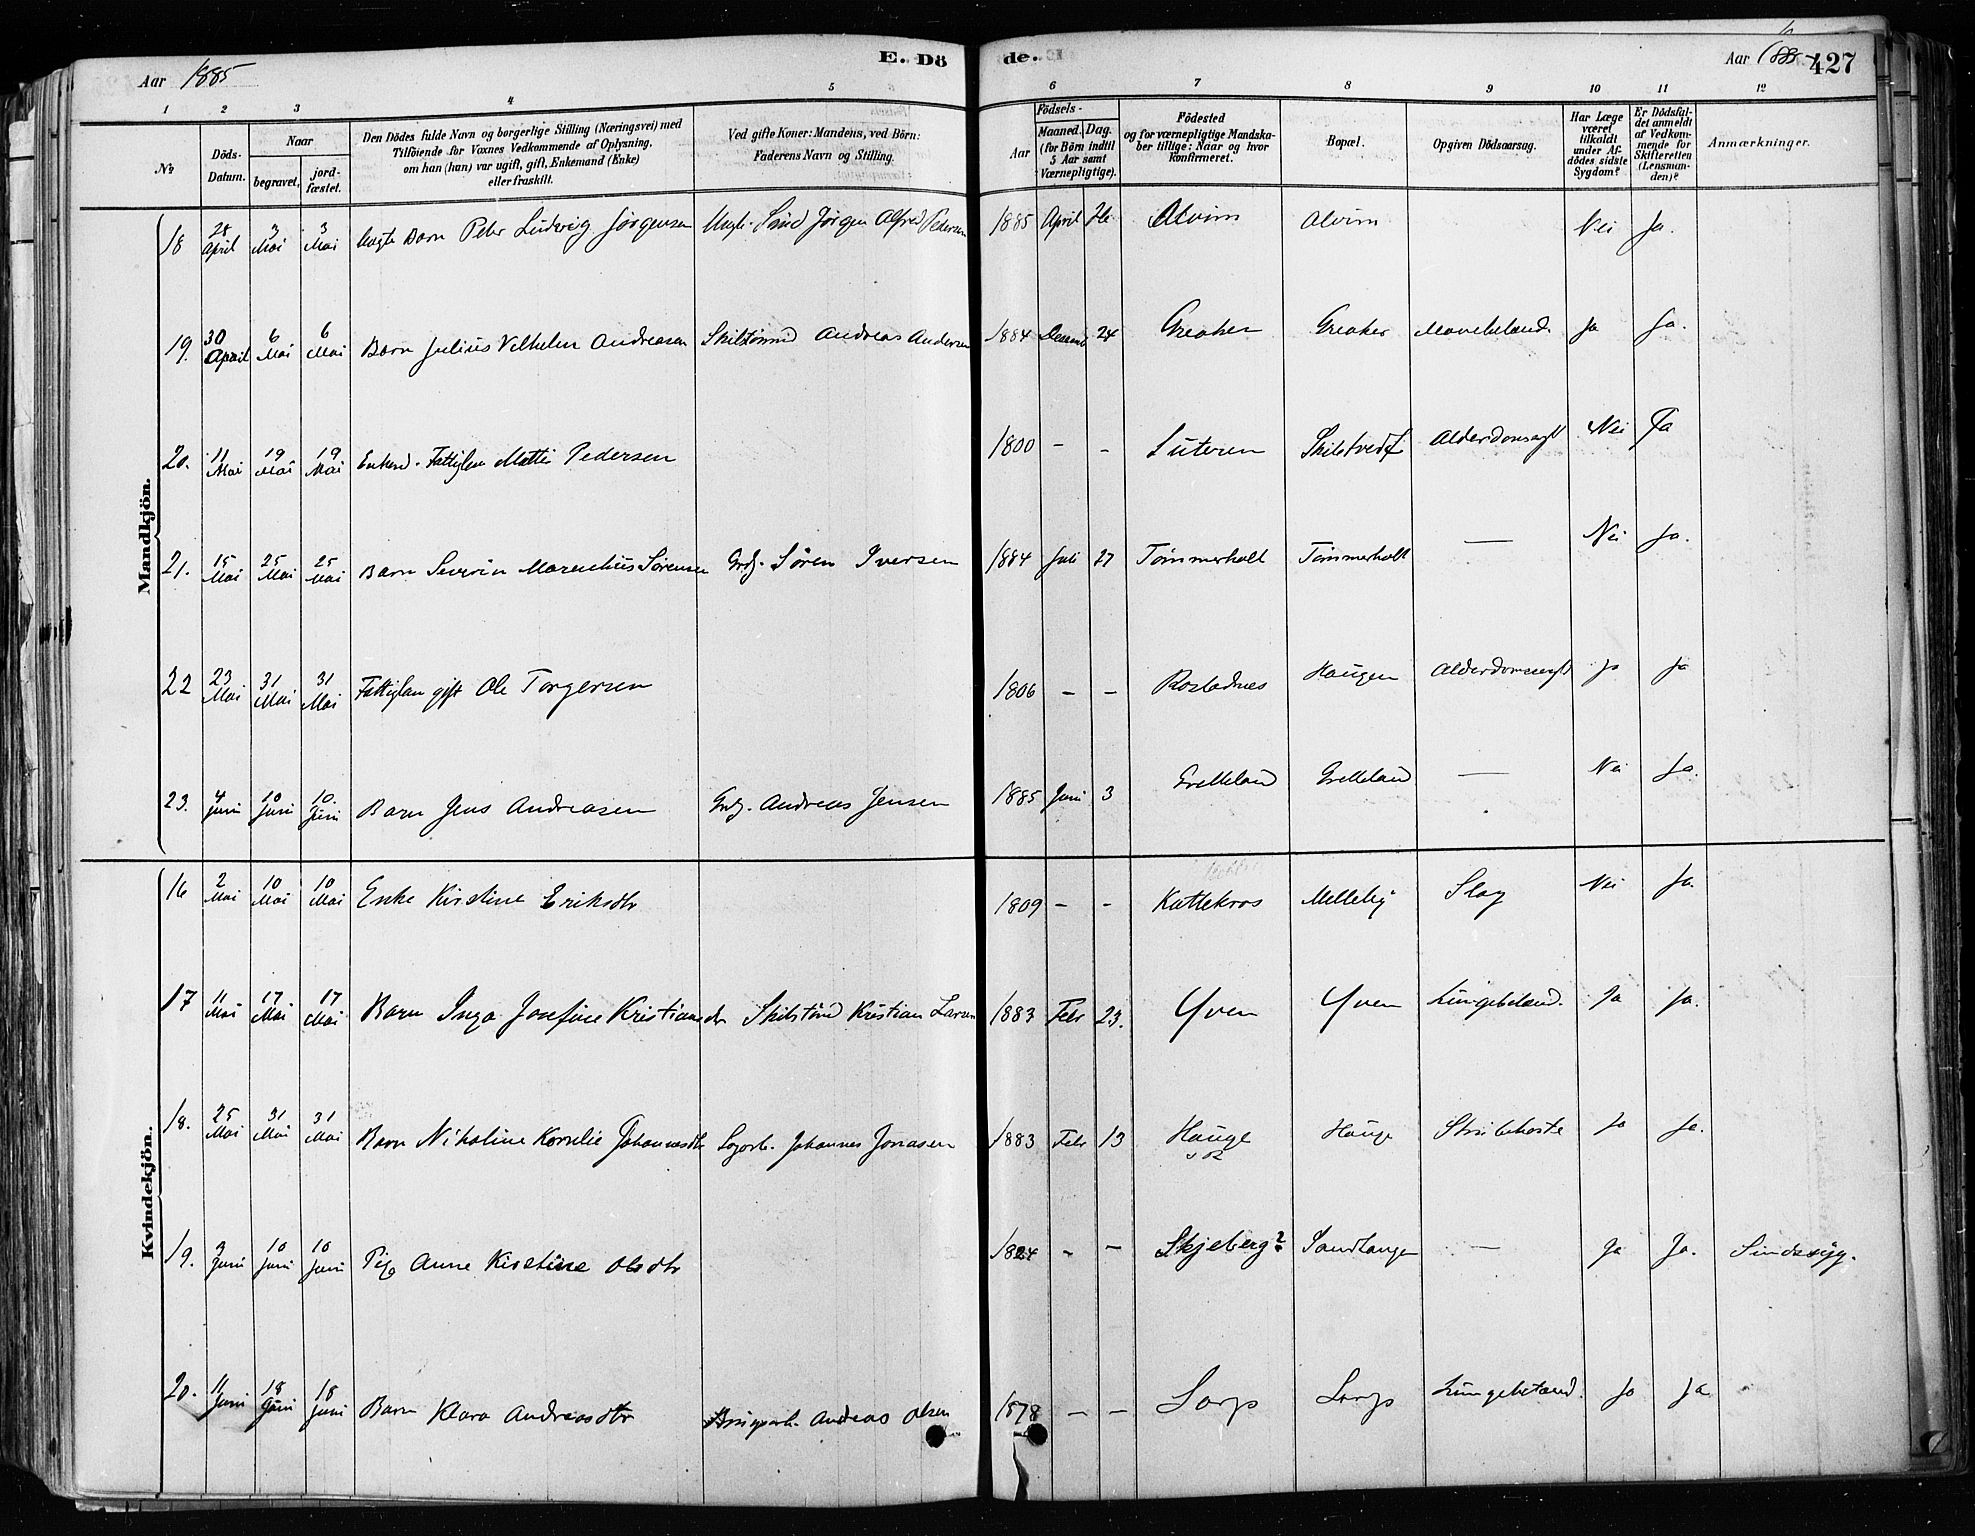 Aar 1885
E. Dö
de.
Aar 1885
427
1 2 3 4 5 6 7 8 9 10 11 12
No
Döds-Datum.
Naar
begravet,
jord-fæstet.
Den Dödes fulde Navn og borgerlige Stilling (Næringsvei) med
Tilföiende for Voxnes Vedkommende af Oplysning,
om han (han) var ugift, gift, Enkemand (Enke)
eller fraskilt.
Ved gifte Koner: Mandens, ved Börn:
Faderens Navn og Stilling.
Födsels-
Aar
Maaned. Dag.
(for Börn indtil
5 Aar samt
Værnepligtige).
Födested
og for værnepligtige Mandska-
ber tillige: Naar og hvor
konfirmeret.
Bopæl.
Opgiven Dödsaarsag.
Har Læge
været
tilkaldt
under Af-
dödes sidste
Sygdom?
Er Dödsfal-
det anmeldt
af Vedkom-
mende for
Skifteretten
(Lensman-
den)?
Anmærkninger.
Mandkjön.
18 28 April 3 Mai 3 Mai Uægte Barn Peter Ludvig Jørgensen Ungk. Jørgen Alfred Pedersen 1885 April Alvim Alvim Nei Ja.
19. 30 April 6 Mai 6 Mai Barn Julius Vilhelm Andreasen Andreas Andersen 1884 24 Greaker Greaker Ja Ja.
20. 11 Mai 19 Mai 19 Mai Enkem. Fattiglem Mathis Pedersen 1800 - - Alderdomssygd Nei Ja
21. 15 Mai 25 Mai 25 Mai Barn Severin Marenthius Sørensen Grdj. Søren Iversen 1884 Juli 27 Tømmerholt Tømmerholt — Nei Ja.
22 23 Mai 31 Mai 31 Mai Fattiglem gift Ole Torgersen 1806 - - Haugen Alderdomssygd Ja Ja
23. 4 Juni 10 Juni 10. Juni Barn Jens Andreasen Grdj. Andreas Jensen 1885 Juni 3 Grelleland Grelleland — Nei Ja.
Kvindekjön.
16 2 Mai 10 Mai 10 Mai Enke Kirstine Eriksdtr 1809 - - Kattekras Melleby Slag Nei Ja.
17 11 Mai 17 Mai 17 Mai Barn Inga Josefine Kristiansdr Kristian Larsen 1883 Febr 23. Yven Yven Lungebetænd. Ja Ja.
18. 25 Mai 31 Mai 31 Mai Barn Nikoline Kornelie Johannesdtr Johannes Jonasen 1883 Febr 13 Hauge Hauge Strubehoste Ja Ja.
19. 3 Juni 10 Juni 10 Juni Pige Anne Kirstine Olsdtr 1824 - - Skjeberg? Sandtangen — Ja Ja. Sindssyg.
20. 11 Juni 18 Juni 18 Juni Barn Klara Andreasdtr Andreas Olsen 1878 - - Sarp Sarp Lungebetænd. Ja Ja